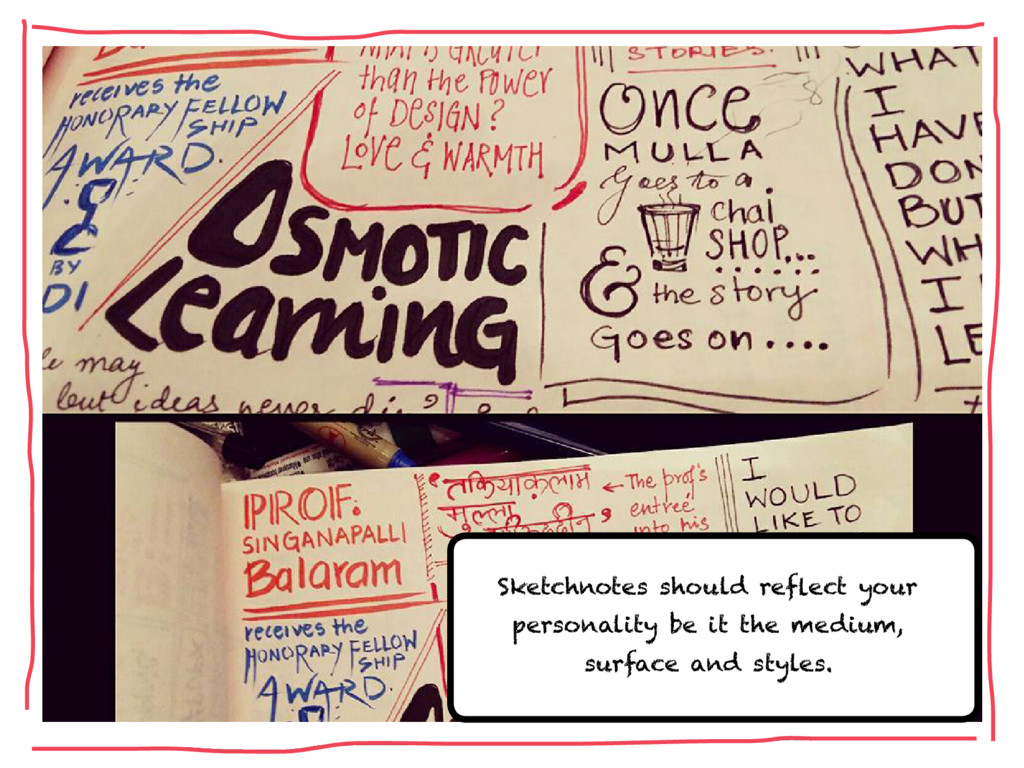 receives the
HONORARY FELLOW
SHIP
AWARD.
BY
DI
than the POWER
of DESIGN?
LOVE & WARMTH
OSMOTIC
Learning
may
but ideas never die
STORIES.
Once
MULLA
Goes to a.
chai
SHOP...
& the story
Goes on ....
WHAT
I
HAVE
DON
BUT
WH
I
LE
PROF:
SINGANAPALLI
Balaram
receives the
HONORARY FELLOW
SHIP
AWARD.
तकियाकलाम
मुल्ला
← The prof's
entrée
into his
I
WOULD
LIKE TO
Sketchnotes should reflect your
personality be it the medium,
surface and styles.